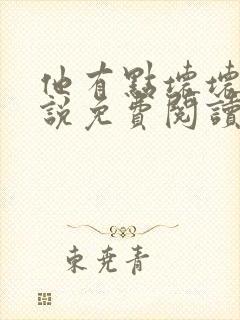 他有點壞壞
說免費閱讀
東堯青